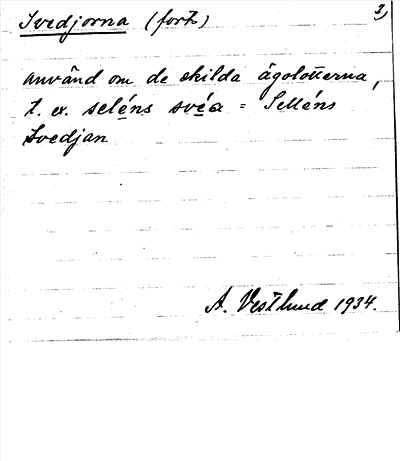 Svedjorna (forts) 2)
använd om de skilda ägolotterna,
t. ex. seléns svéa = Selléns
Svedjan
A. Vestlund 1934.